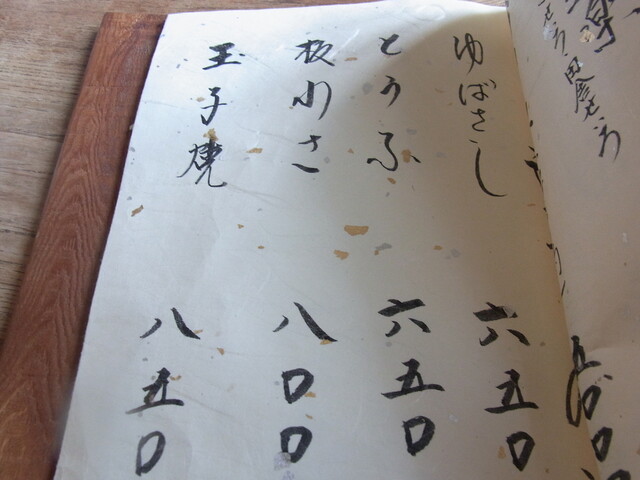 ゆばさし 六五〇
とうふ 六五〇
板わさ 八〇〇
玉子焼 八五〇